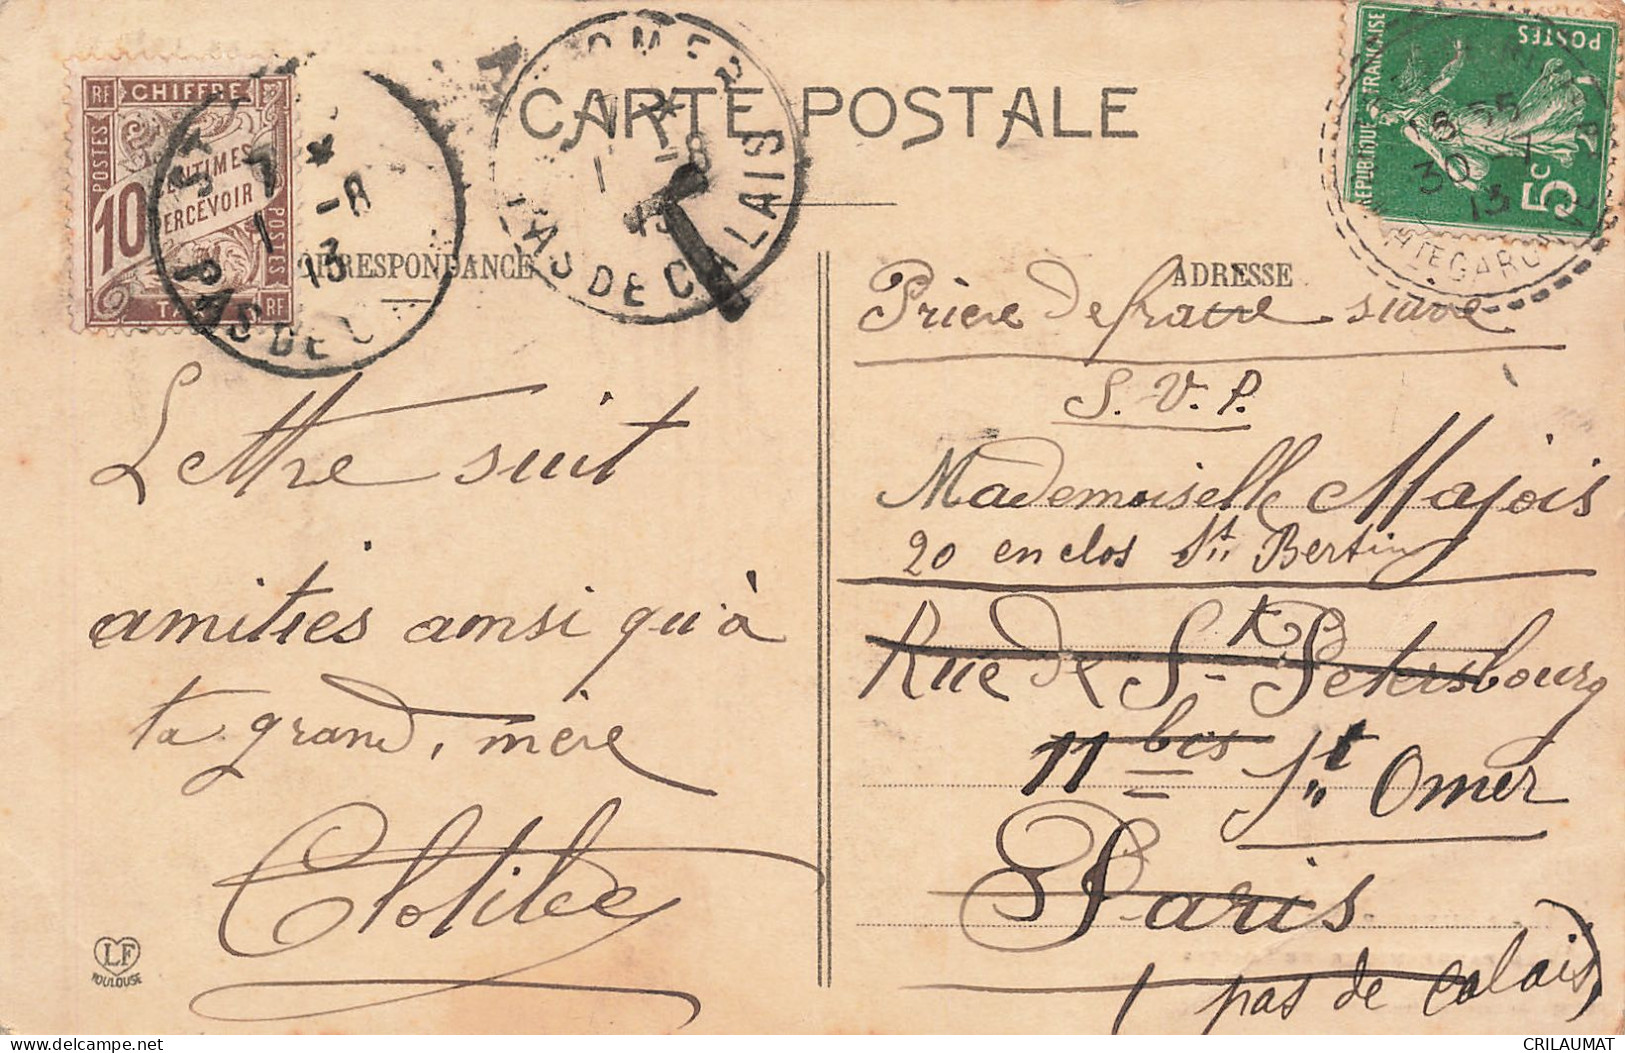 CARTE POSTALE
RF CHIFFRE
POSTES
10 CENTIMES
PERCEVOIR
POSTES
RF
7 *
1 -8
13
PAS DE C
OMER
1 -8
13
PAS DE CALAIS
REPUBLIQUE FRANÇAISE
POSTES
5c
30 -1
13
HTE GARONNE
CORRESPONDANCE
ADRESSE
Lettre suit
amitiés ainsi qu'à
ta grand, mère
Clotilde
LF
TOULOUSE
Prière de faire suivre
S. V. P.
Mademoiselle Majois
20 enclos St Bertin
Rue de St Petersbourg
11 bis
St Omer
Paris
(pas de Calais)
CRILAUMAT